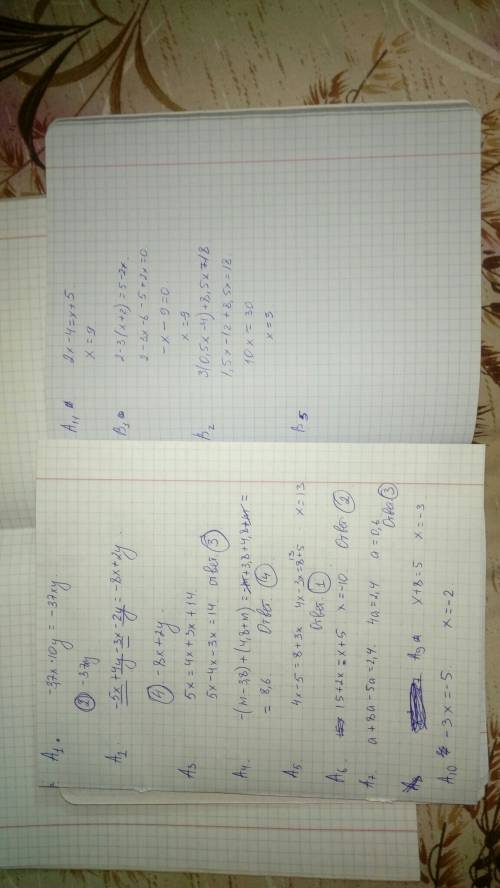 A1. -3,7x·10y = -37xy
② -37xy
A2 -5x+4y-3x-2y = -8x+2y
④ -8x+2y
A3 5x = 4x+3x+14
5x-4x-3x = 14 ответ ③
A4. -(м-3,8)+(4,8+м) = -м+3,8+4,8+м =
= 8,6 Ответ ④
A5 4x-5=8+3x 4x-3x=8+5 x=13
Ответ ①
A6 15+2x=x+5 x=-10. Ответ ②
A7 a+8a-5a=2,4. 4a=2,4 a=0,6
Ответ ③
A9 x+8=5 x=-3
A10 -3x=-5. x=-2
A11 2x-4=x+5
x=9
B1 2-3(x+2)=5-2x
2-3x-6-5+2x=0
-x-9=0
x=-9
B2 3(0,5x-4)+8,5x=18
1,5x-12+8,5x=18
10x=30
x=3
B3